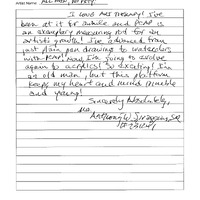 Artist Name: ALL MEN,
I LOVE Art Therapy! I've
been at it for awhile and PCAP is
an exemplary measuring rod for my
artistic growth! I've advanced from
just plain pen drawings to watercolors
with PCAP! Now, I'm going to evolve
again to acrylics! So exciting! I'm
an old man, but this platform
keeps my heart and mind nimble
and young!
Sincerely Absolutely,
Mr.
Anthony W.